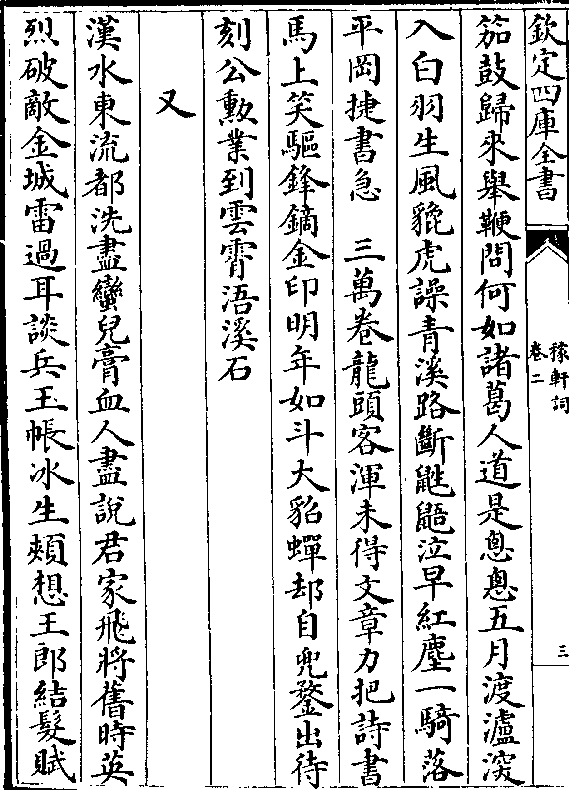 欽定四庫全書
稼軒詞
卷二
三
笳鼓歸來舉鞭問何如諸葛人道是悤悤五月渡瀘深
入白羽生風貔虎譟青溪路斷鼪鼯泣早紅塵一騎落
平岡捷書急　三萬卷龍頭客渾未得文章力把詩書
馬上笑驅鋒鏑金印明年如斗大貂蟬却自兜鍪出待
刻公勲業到雲霄浯溪石
又
漢水東流都洗盡蠻兒膏血人盡說君家飛將舊時英
烈破敵金城雷過耳談兵玉帳冰生頰想王郎結髮賦